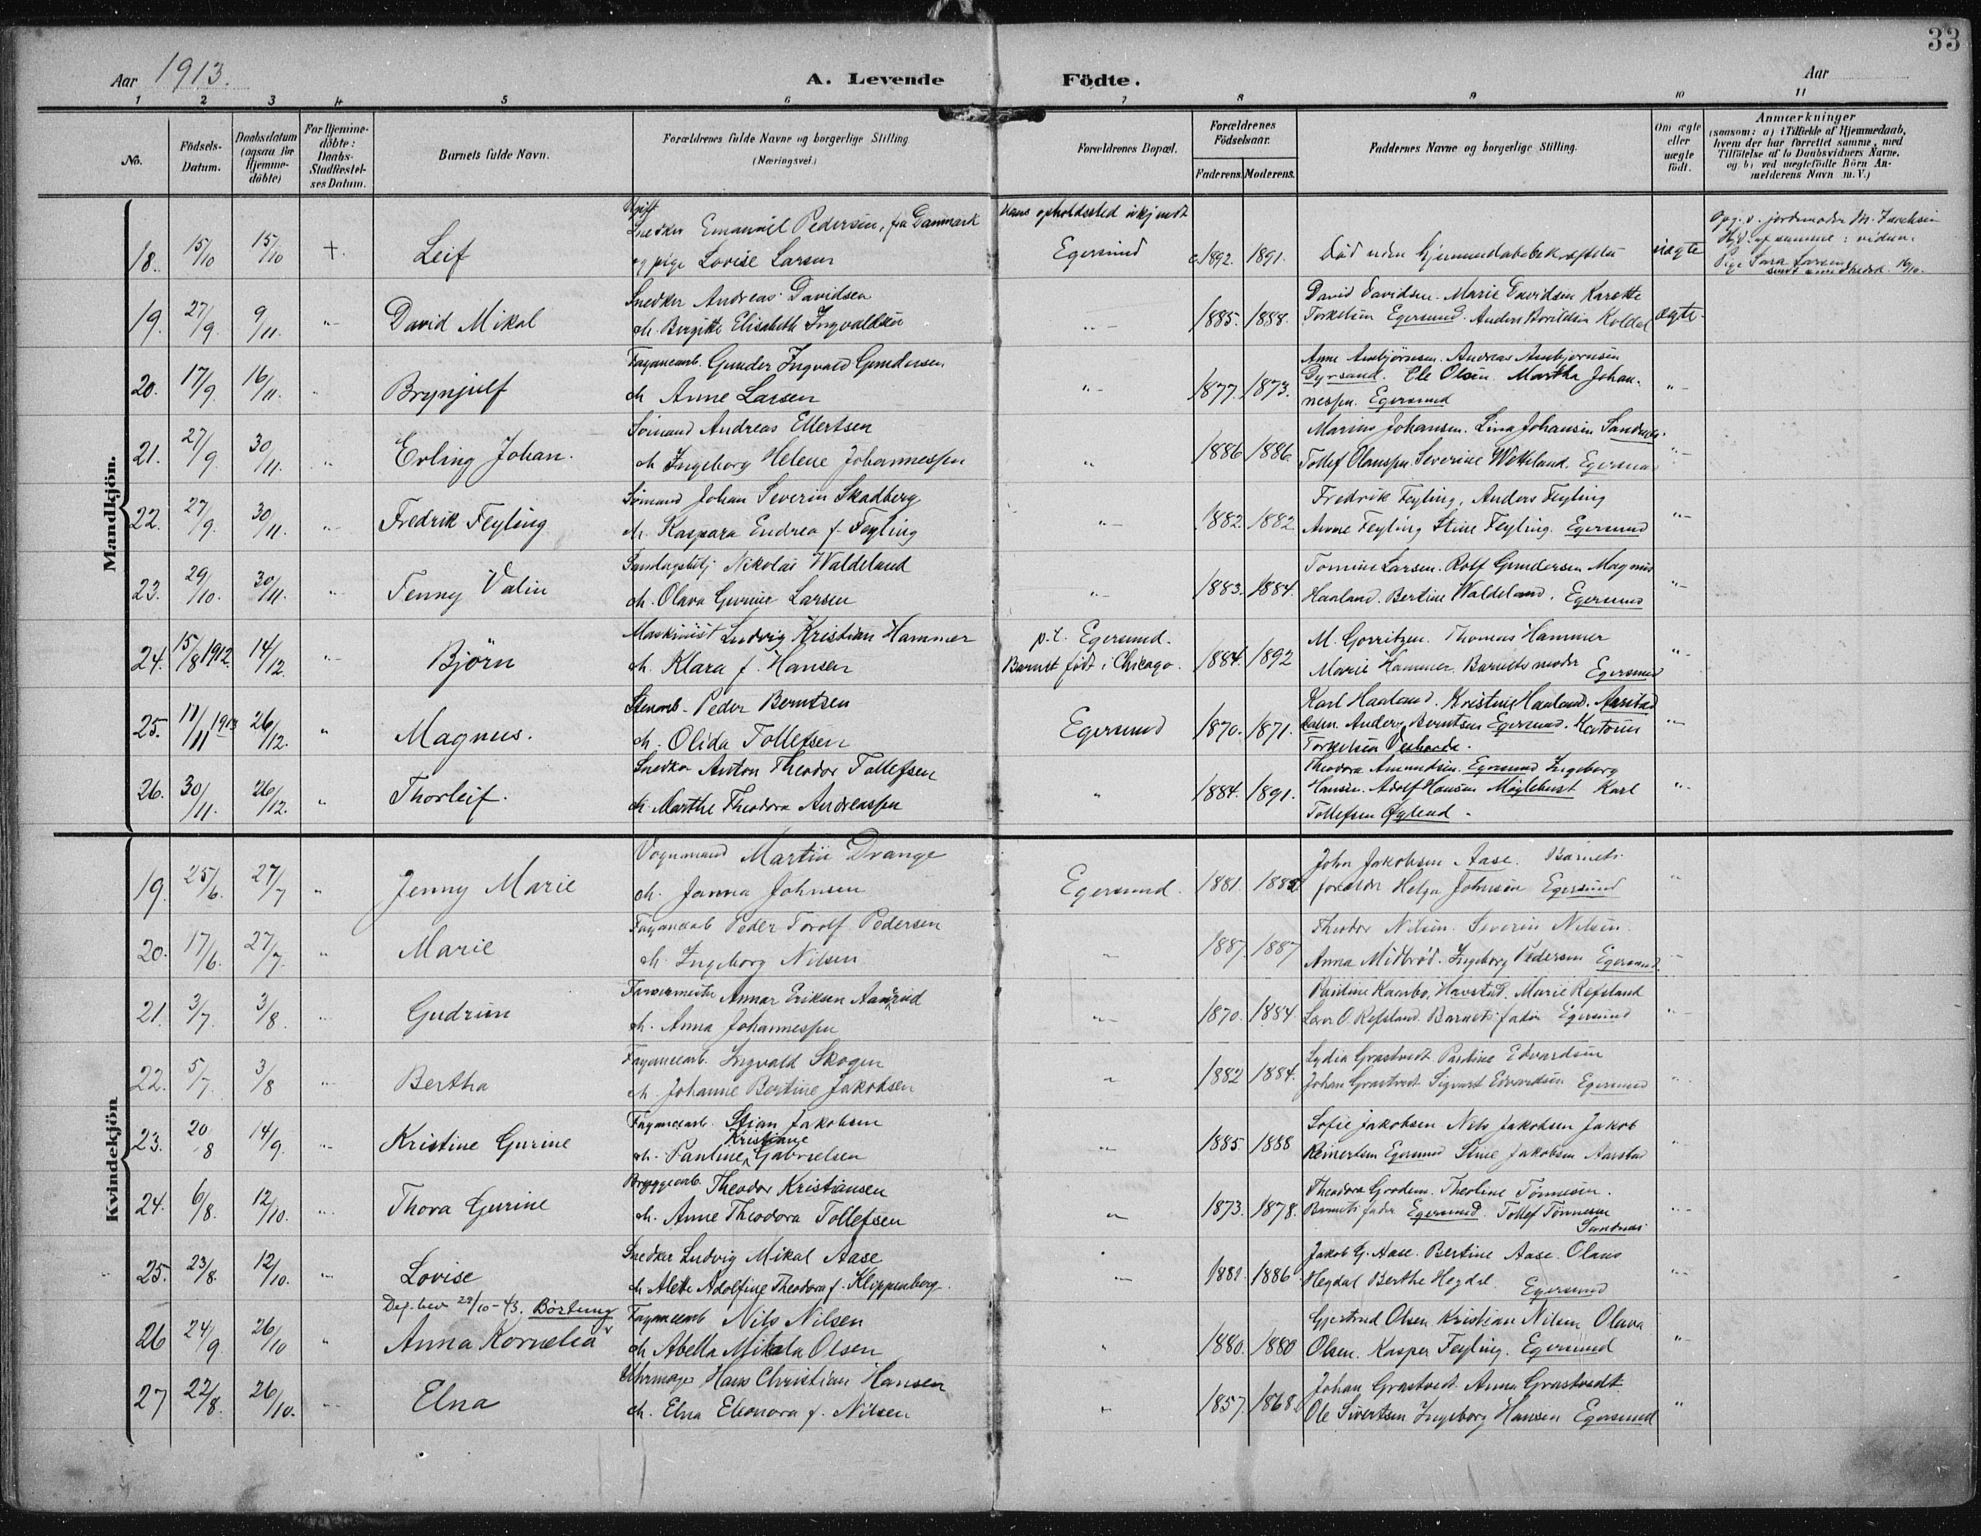 33
Aar 1913.
A. Levende Födte.
Aar
1 2 3 4 5 6 7 8 9 10 11
No.
Födsels-
Datum.
Daabsdatum
(ogsaa for
Hjemme-
döbte)
For Hjemme-
döbte:
Daabs-
Stadfæstel-
ses Datum.
Barnets fulde Navn.
Forældrenes fulde Navne og borgerlige Stilling
(Næringsvei.)
Forældrenes Bopæl.
Forældrenes
Födselsaar.
Faderens. Moderens.
Faddernes Navne og borgerlige Stilling.
Om ægte
eller
uægte
födt.
Anmærkninger
(saasom: a) i Tilfælde af Hjemmedaab,
hvem der har forrettet samme, med
Tilföielse af to Daabsvidners Navne,
og b) ved uægtefödte Börn An-
melderens Navn m. V.)
Mandkjön.
Ugift
Snedker Emanuel Pedersen, fra Danmark
Hans opholdssted ukjendt
18. 15/10 15/10 +. Leif
og pige Lovise Larsen
Egersund
1892. 1891.
Död uden Hjemmedaabsbekræftelse
uægte
Opg. v. jordmoder M.
Pige Sara Larsen
Snedker Andreas Davidsen
19. 27/9 9/11. David Mikal
m. Birgitte Elisabeth Ingvaldsen
1885. 1888.
David Davidsen. Marie Davidsen Karette
Torkelsen Egersund. Anders Koldal
ægte
Fayancearb. Gunder Ingvald Gundersen
20. 17/9 16/11. Brynjulf
m. Anne Larsen
1877. 1873.
Anne Ambjørnsen. Andreas Ambjørnsen
Ole Olsen. Martha Johan-
nesen. Egersund
Sömand Andreas Ellertsen
21. 27/9 30/11. Erling Johan.
m. Ingeborg Helene Johannessen
1886 1886.
Marius Johansen. Lina Johansen Sandnes.
Tollef Olaussen. Severine Wetteland. Egersund
Sömand Johan Severin Skadberg
22. 27/9. 30/11. Fredrik Feyling
m. Kaspara Endrea f. Feyling
1882. 1882.
Fredrik Feyling, Anders Feyling
Anne Feyling Stine Feyling. Egersund
Nikolai Waldeland
23. 29/10. 30/11. Fenny Valin
m. Olava Gurine Larsen
1883. 1884.
Tomine Larsen. Rolf Gundersen Magnus
Haaland. Bertine Waldeland. Egersund
Maskinist Ludvig Kristian Hammer
24. 15/8 1912. 14/12. Björn
m. Klara f. Hansen
p.t. Egersund.
Barnet född i Chicago.
1884. 1892
M. Gorritzen. Thomas Hammer
Marie Hammer. Barnets moder Egersund
Peder Berntsen
25. 11/11 1913 26/12. Magnus.
m. Olida Tollefsen
Egersund
1870. 1871.
Karl Haaland. Kristine Haaland. Aarstad
Anders Berntsen Egersund. Katrine
Torkelsen
Snedker Anton Theodor Tollefsen
26. 30/11. 26/12. Thorleif.
m. Marthe Theodora Andreassen
1884. 1891.
Theodora Amundsen. Egersund Ingeborg
Hansen. Adolf Hansen Karl
Tollefsen
Kvindekjön
Vognmand Martin Drange
19. 25/6. 27/7 Jenny Marie
m. Janna Johnsen
Egersund.
1881. 1882
John Jakobsen Aase. Barnets
forældre Helga Johnsen Egersund
Fayancearb Peder Torolf Pedersen
20. 17/6. 27/7. Marie
m. Ingeborg Nilsen
1887. 1887
Theodor Nilsen. Severin Nilsen.
Anna Midbrød. Ingeborg Pedersen Egersund.
Annar Eriksen Aamrud
21. 3/7 3/8. Gudrun
m. Anna Johannessen
1870. 1884
Pauline Kaarbø, Havstad. Marie Refsland
O. Refsland. Barnets fader Egersund
Fayancearb. Ingvald Skogen
22. 5/7. 3/8 Bertha
m. Johanne Bertine Jakobsen
1882 1884.
Lydia Grastvedt Pauline Edvardsen
Johan Grastvedt Sigvart Edvardsen Egersund
Fayancearb. Stian Jakobsen
Kristiane
23. 20/8 14/9. Kristine Gurine
m. Pauline Gabrielsen
1885. 1888
Sofie Jakobsen Nils Jakobsen Jakob
Reinertsen Egersund Stine Jakobsen Aarstad
Bryggearb. Theodor Kristiansen
24. 6/8. 12/10. Thora Gurine
m. Anne Theodora Tollefsen
1873. 1878.
Theodora Theoline Tønnesen.
Barnets fader Egersund. Tollef Tønnesen
Sandnes
Snedker Ludvig Mikal Aase
25. 23/8. 12/10. Lovise
m. Alette Adolfine Theodora f. Klippenberg.
1881. 1886
Jakob G. Aase. Bertine Aase. Olaus
Hegdal Berthe Hegdal Egersund
Def. bev 29/10-43. Börtung
Fayancearb Nils Nilsen
26 24/9 26/10 Anna Kornelia
m. Abella Mikala Olsen
1880. 1880
Gjertrud Olsen Kristian Nilsen Olava
Olsen. Kasper Feyling. Egersund
Uhrmager Hans Christian Hansen
27 22/8. 26/10. Elna
m. Elna Eleonora f. Nilsen
1857. 1868.
Johan Grastvedt. Anna Grastvedt
Ole Sivertsen Ingeborg Hansen Egersund